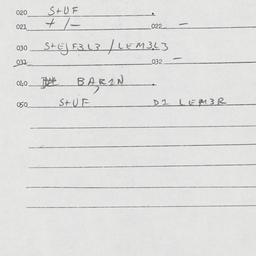 020 S+UF .
021 + /- 022 -
030 S+EJF3L3 / LEM3L3
031 032 -
040 BAR2N .
050 S+UF D2 LEM3R